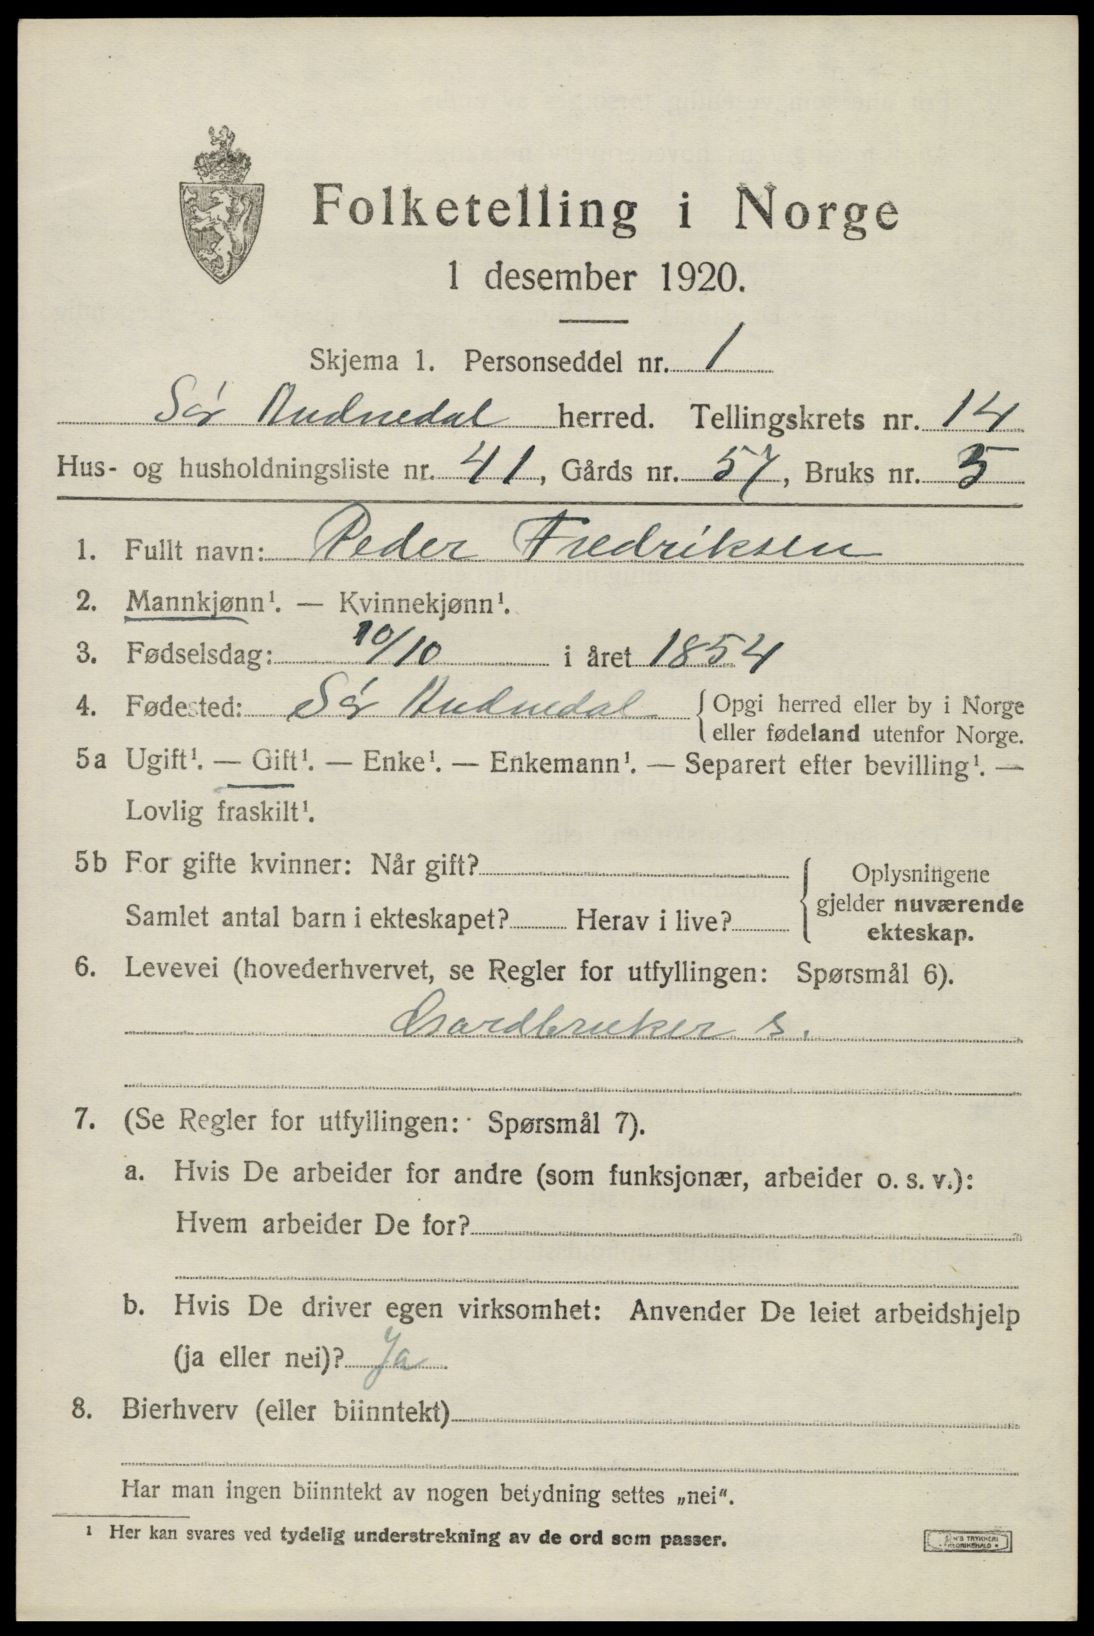 Folketelling i Norge
1 desember 1920.
Skjema 1. Personseddel nr. 1
Sør Audnedal herred. Tellingskrets nr. 14
Hus- og husholdningsliste nr. 41, Gårds nr. 57, Bruks nr. 5
1. Fullt navn: Peder Fredriksen
2. Mannkjønn¹. — Kvinnekjønn¹.
3. Fødselsdag: 10/10 i året 1854
4. Fødested: Sør Audnedal { Opgi herred eller by i Norge
eller fødeland utenfor Norge.
5a Ugift¹. — Gift¹. — Enke¹. — Enkemann¹. — Separert efter bevilling¹. —
Lovlig fraskilt¹.
5b For gifte kvinner: Når gift?
Samlet antal barn i ekteskapet? Herav i live?
{ Oplysningene
gjelder nuværende
ekteskap.
6. Levevei (hovederhvervet, se Regler for utfyllingen: Spørsmål 6).
Gardbruker s.
7. (Se Regler for utfyllingen: Spørsmål 7).
a. Hvis De arbeider for andre (som funksjonær, arbeider o. s. v.):
Hvem arbeider De for?
b. Hvis De driver egen virksomhet: Anvender De leiet arbeidshjelp
(ja eller nei)? Ja
8. Bierhverv (eller biinntekt)
Har man ingen biinntekt av nogen betydning settes „nei".
¹ Her kan svares ved tydelig understrekning av de ord som passer.
TRYKKERI
FREDRIKSHALD